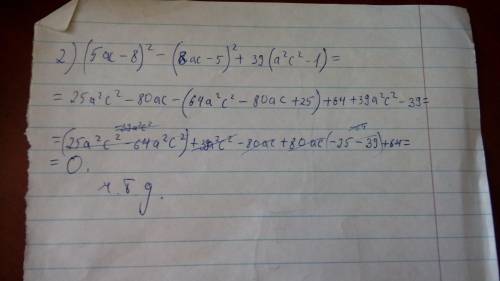 2) (5ac-8)² - (8ac-5)² + 39(a²c²-1) =
= 25a²c² - 80ac - (64a²c² - 80ac + 25) + 64 + 39a²c² - 39 =
= (25a²c² - 64a²c²) + 39a²c² - 80ac + 80ac (-25 - 39) + 64 =
= 0.
ч.т.д.